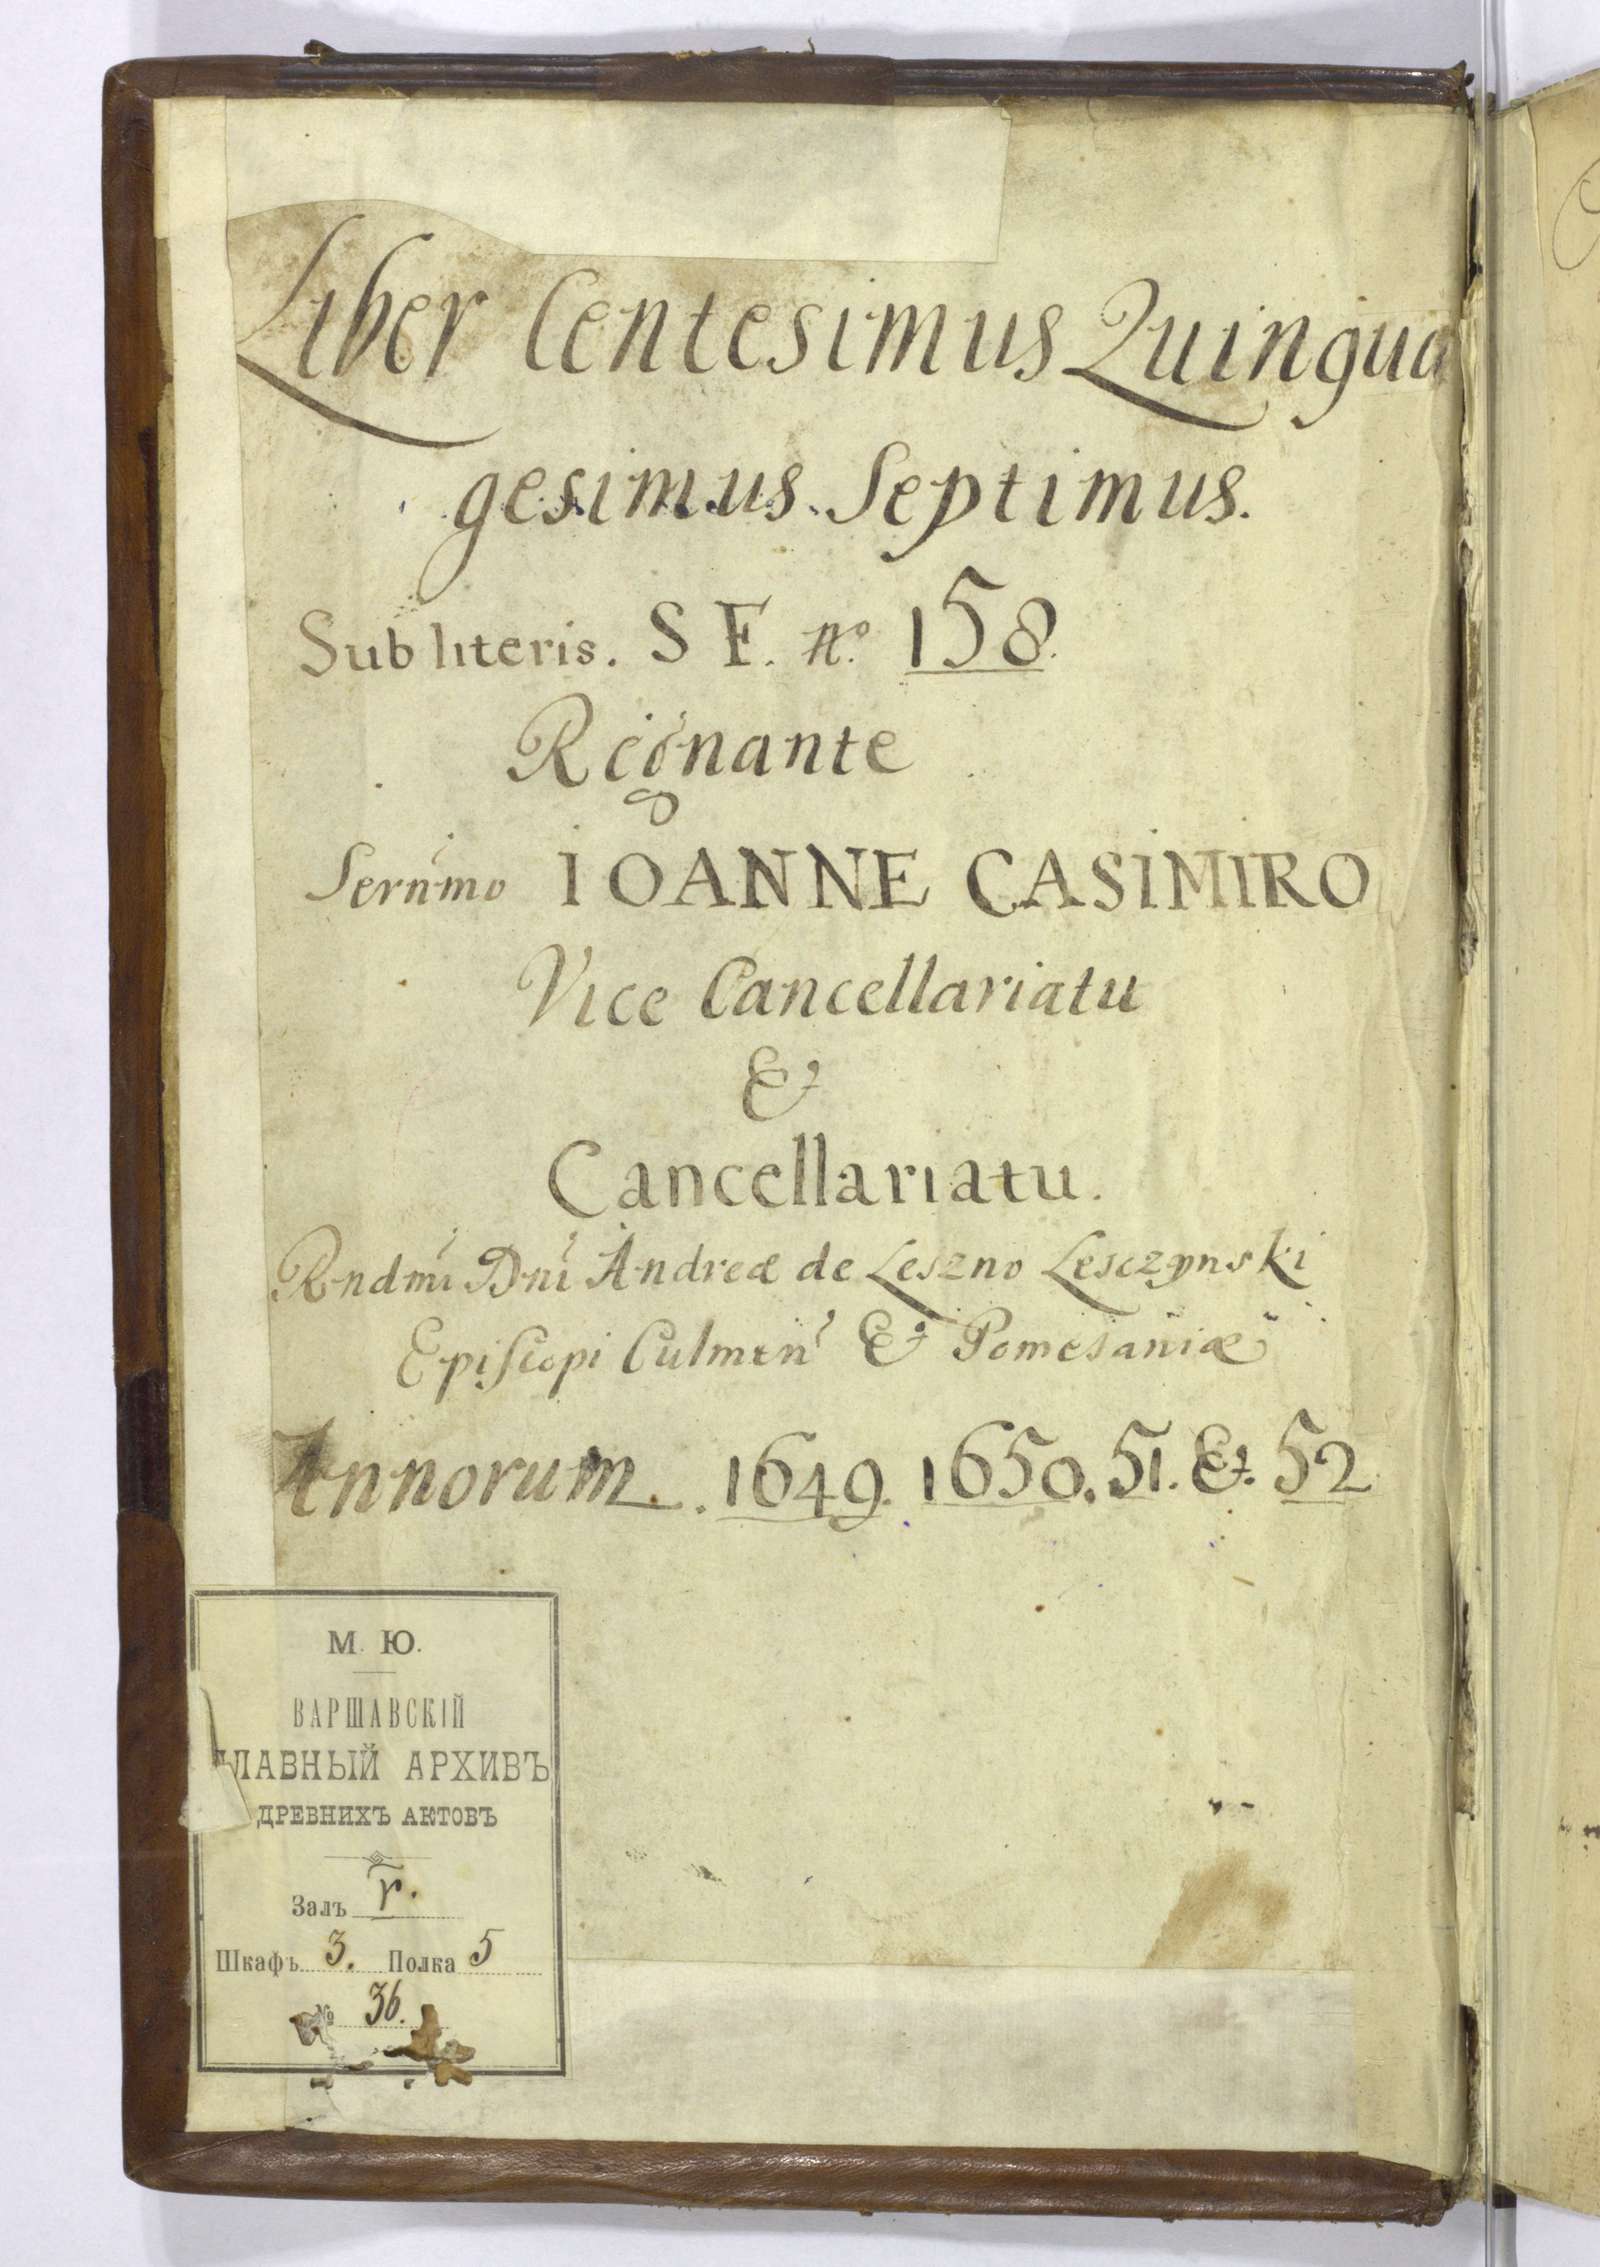 Liber Centesimus Quinqua
gesimus Septimus.
Sub literis. S F. No. 158.
Regnante
Sernmo IOANNE CASIMIRO
Vice Cancellariatu
&
Cancellariatu.
Rndmi Dni Andreæ de Leszno Lesczynski
Episcopi Culmen & Pomesaniæ
Annorum. 1649. 1650. 51. &. 52
М. Ю.
ВАРШАВСКІЙ
ГЛАВНЫЙ АРХИВЪ
ДРЕВНИХЪ АКТОВЪ
Залъ
Шкафъ 3. Полка 5
№ 36.